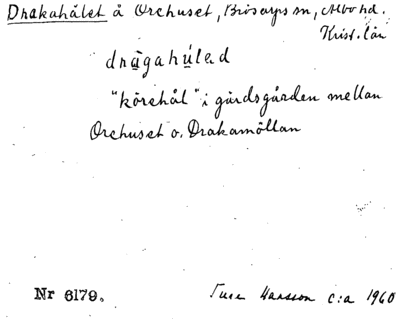 Drakahålet å Orehuset, Brösarps sn, Albo hd.
Krist. län
dråg̲ahú̲led
"körehål" i gärdsgården mellan
Orehuset o. Drakamöllan
Nr 6179.
Ture Hansson c:a 1960